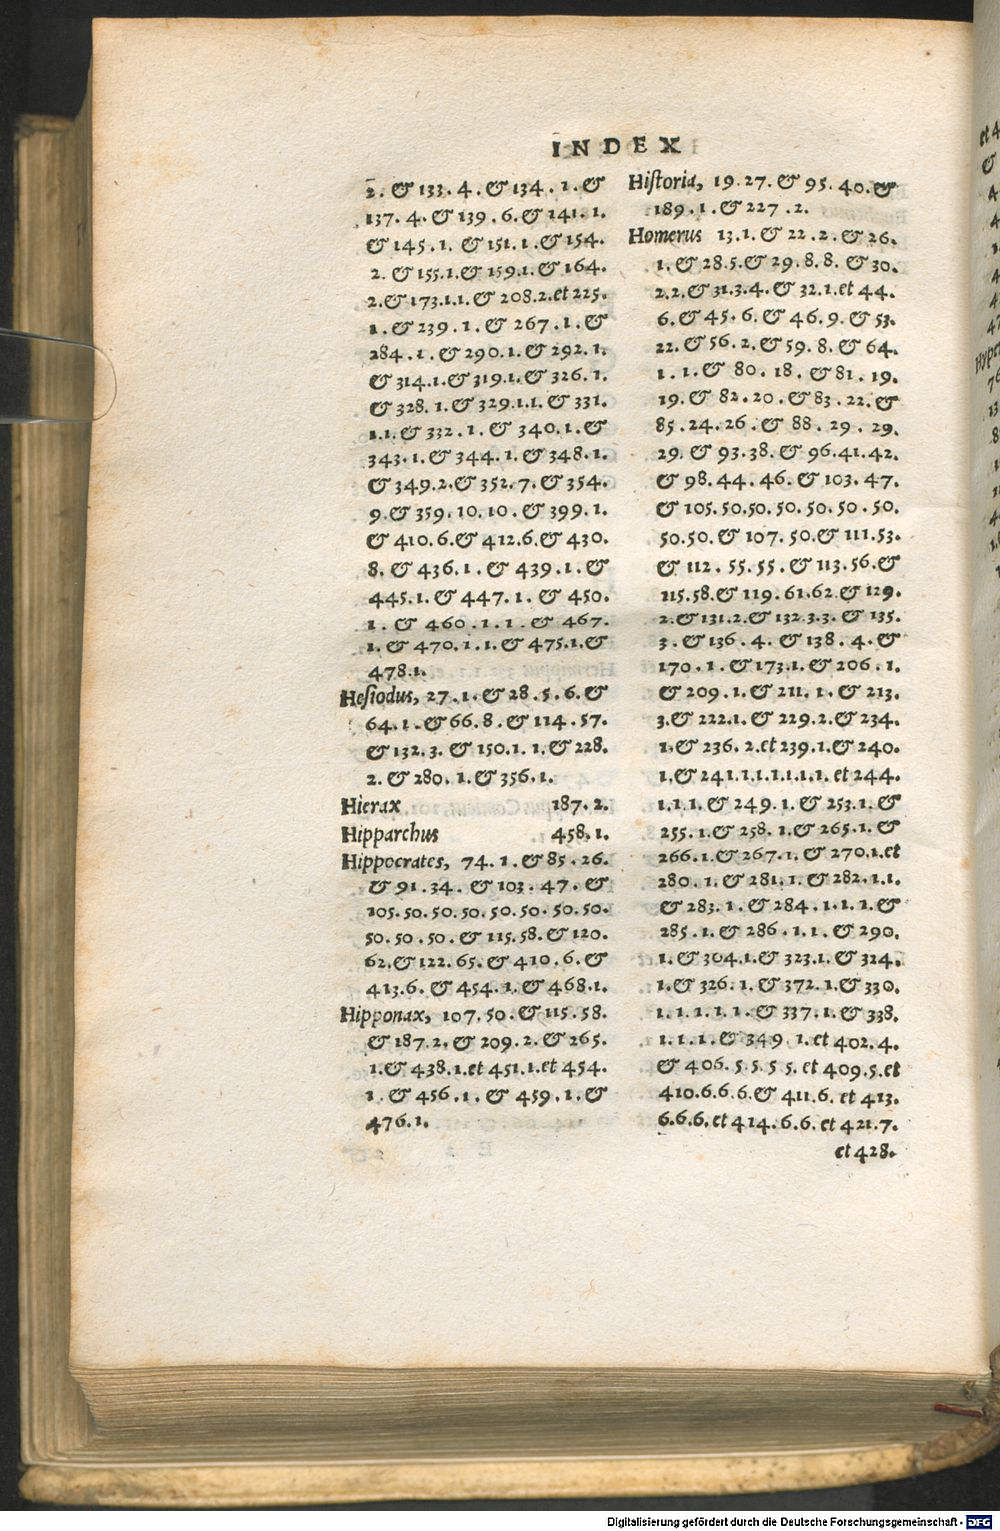 INDEX
2. & 133. 4. & 134. 1. &
137. 4. & 139. 6. & 141. 1.
& 145. 1. & 151. 1. & 154.
2. & 155. 1. & 159. 1. & 164.
2. & 173. 1. 1. & 208. 2. et 225.
1. & 239. 1. & 267. 1. &
284. 1. & 290. 1. & 292. 1.
& 314. 1. & 319. 1. & 326. 1.
& 328. 1. & 329. 1. 1. & 331.
1. 1. & 332. 1. & 340. 1. &
343. 1. & 344. 1. & 348. 1.
& 349. 2. & 352. 7. & 354.
9. & 359. 10. 10. & 399. 1.
& 410. 6. & 412. 6. & 430.
8. & 436. 1. & 439. 1. &
445. 1. & 447. 1. & 450.
1. & 460. 1. 1. & 467.
1. & 470. 1. 1. & 475. 1. &
478. 1.
Hesiodus, 27. 1. & 28. 5. 6. &
64. 1. & 66. 8. & 114. 57.
& 132. 3. & 150. 1. 1. & 228.
2. & 280. 1. & 356. 1.
Hierax 187. 2.
Hipparchus 458. 1.
Hippocrates, 74. 1. & 85. 26.
& 91. 34. & 103. 47. &
105. 50. 50. 50. 50. 50. 50. 50.
50. 50. 50. & 115. 58. & 120.
62. & 122. 65. & 410. 6. &
413. 6. & 454. 1. & 468. 1.
Hipponax, 107. 50. & 115. 58.
& 187. 2. & 209. 2. & 265.
1. & 438. 1. et 451. 1. et 454.
1. & 456. 1. & 459. 1. &
476. 1.
Historia, 19. 27. & 95. 40. &
189. 1. & 227. 2.
Homerus 13. 1. & 22. 2. & 26.
1. & 28. 5. & 29. 8. 8. & 30.
2. 2. & 31. 3. 4. & 32. 1. et 44.
6. & 45. 6. & 46. 9. & 53.
22. & 56. 2. & 59. 8. & 64.
1. 1. & 80. 18. & 81. 19.
19. & 82. 20. & 83. 22. &
85. 24. 26. & 88. 29. 29.
29. & 93. 38. & 96. 41. 42.
& 98. 44. 46. & 103. 47.
& 105. 50. 50. 50. 50. 50. 50.
50. 50. & 107. 50. & 111. 53.
& 112. 55. 55. & 113. 56. &
115. 58. & 119. 61. 62. & 129.
2. & 131. 2. & 132. 3. 3. & 135.
3. & 136. 4. & 138. 4. &
170. 1. & 173. 1. & 206. 1.
& 209. 1. & 211. 1. & 213.
3. & 222. 1. & 229. 2. & 234.
1. & 236. 2. et 239. 1. & 240.
1. & 241. 1. 1. 1. 1. 1. 1. et 244.
1. 1. 1. & 249. 1. & 253. 1. &
255. 1. & 258. 1. & 265. 1. &
266. 1. & 267. 1. & 270. 1. et
280. 1. & 281. 1. & 282. 1. 1.
& 283. 1. & 284. 1. 1. 1. &
285. 1. & 286. 1. 1. & 290.
1. & 304. 1. & 323. 1. & 324.
1. & 326. 1. & 372. 1. & 330.
1. 1. 1. 1. 1. & 337. 1. & 338.
1. 1. 1. & 349 1. et 402. 4.
& 406. 5. 5. 5 5. et 409. 5. et
410. 6. 6. 6. & 411. 6. et 413.
6. 6. 6. et 414. 6. 6. et 421. 7.
et 428.
Digitalisierung gefördert durch die Deutsche Forschungsgemeinschaft - DFG